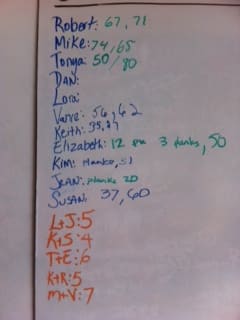 Robert: 67, 71
Mike: 74, 65
Tonya: 50/80
Dan:
Lora:
56, 62
Keith: 35, 27
Elizabeth: 12 3 planks, 50
Kim: Planko, 51
Jean: planke 20
Susan: 37, 60
L+J: 5
K+S: 4
T+E: 6
K+R: 5
M+V: 7